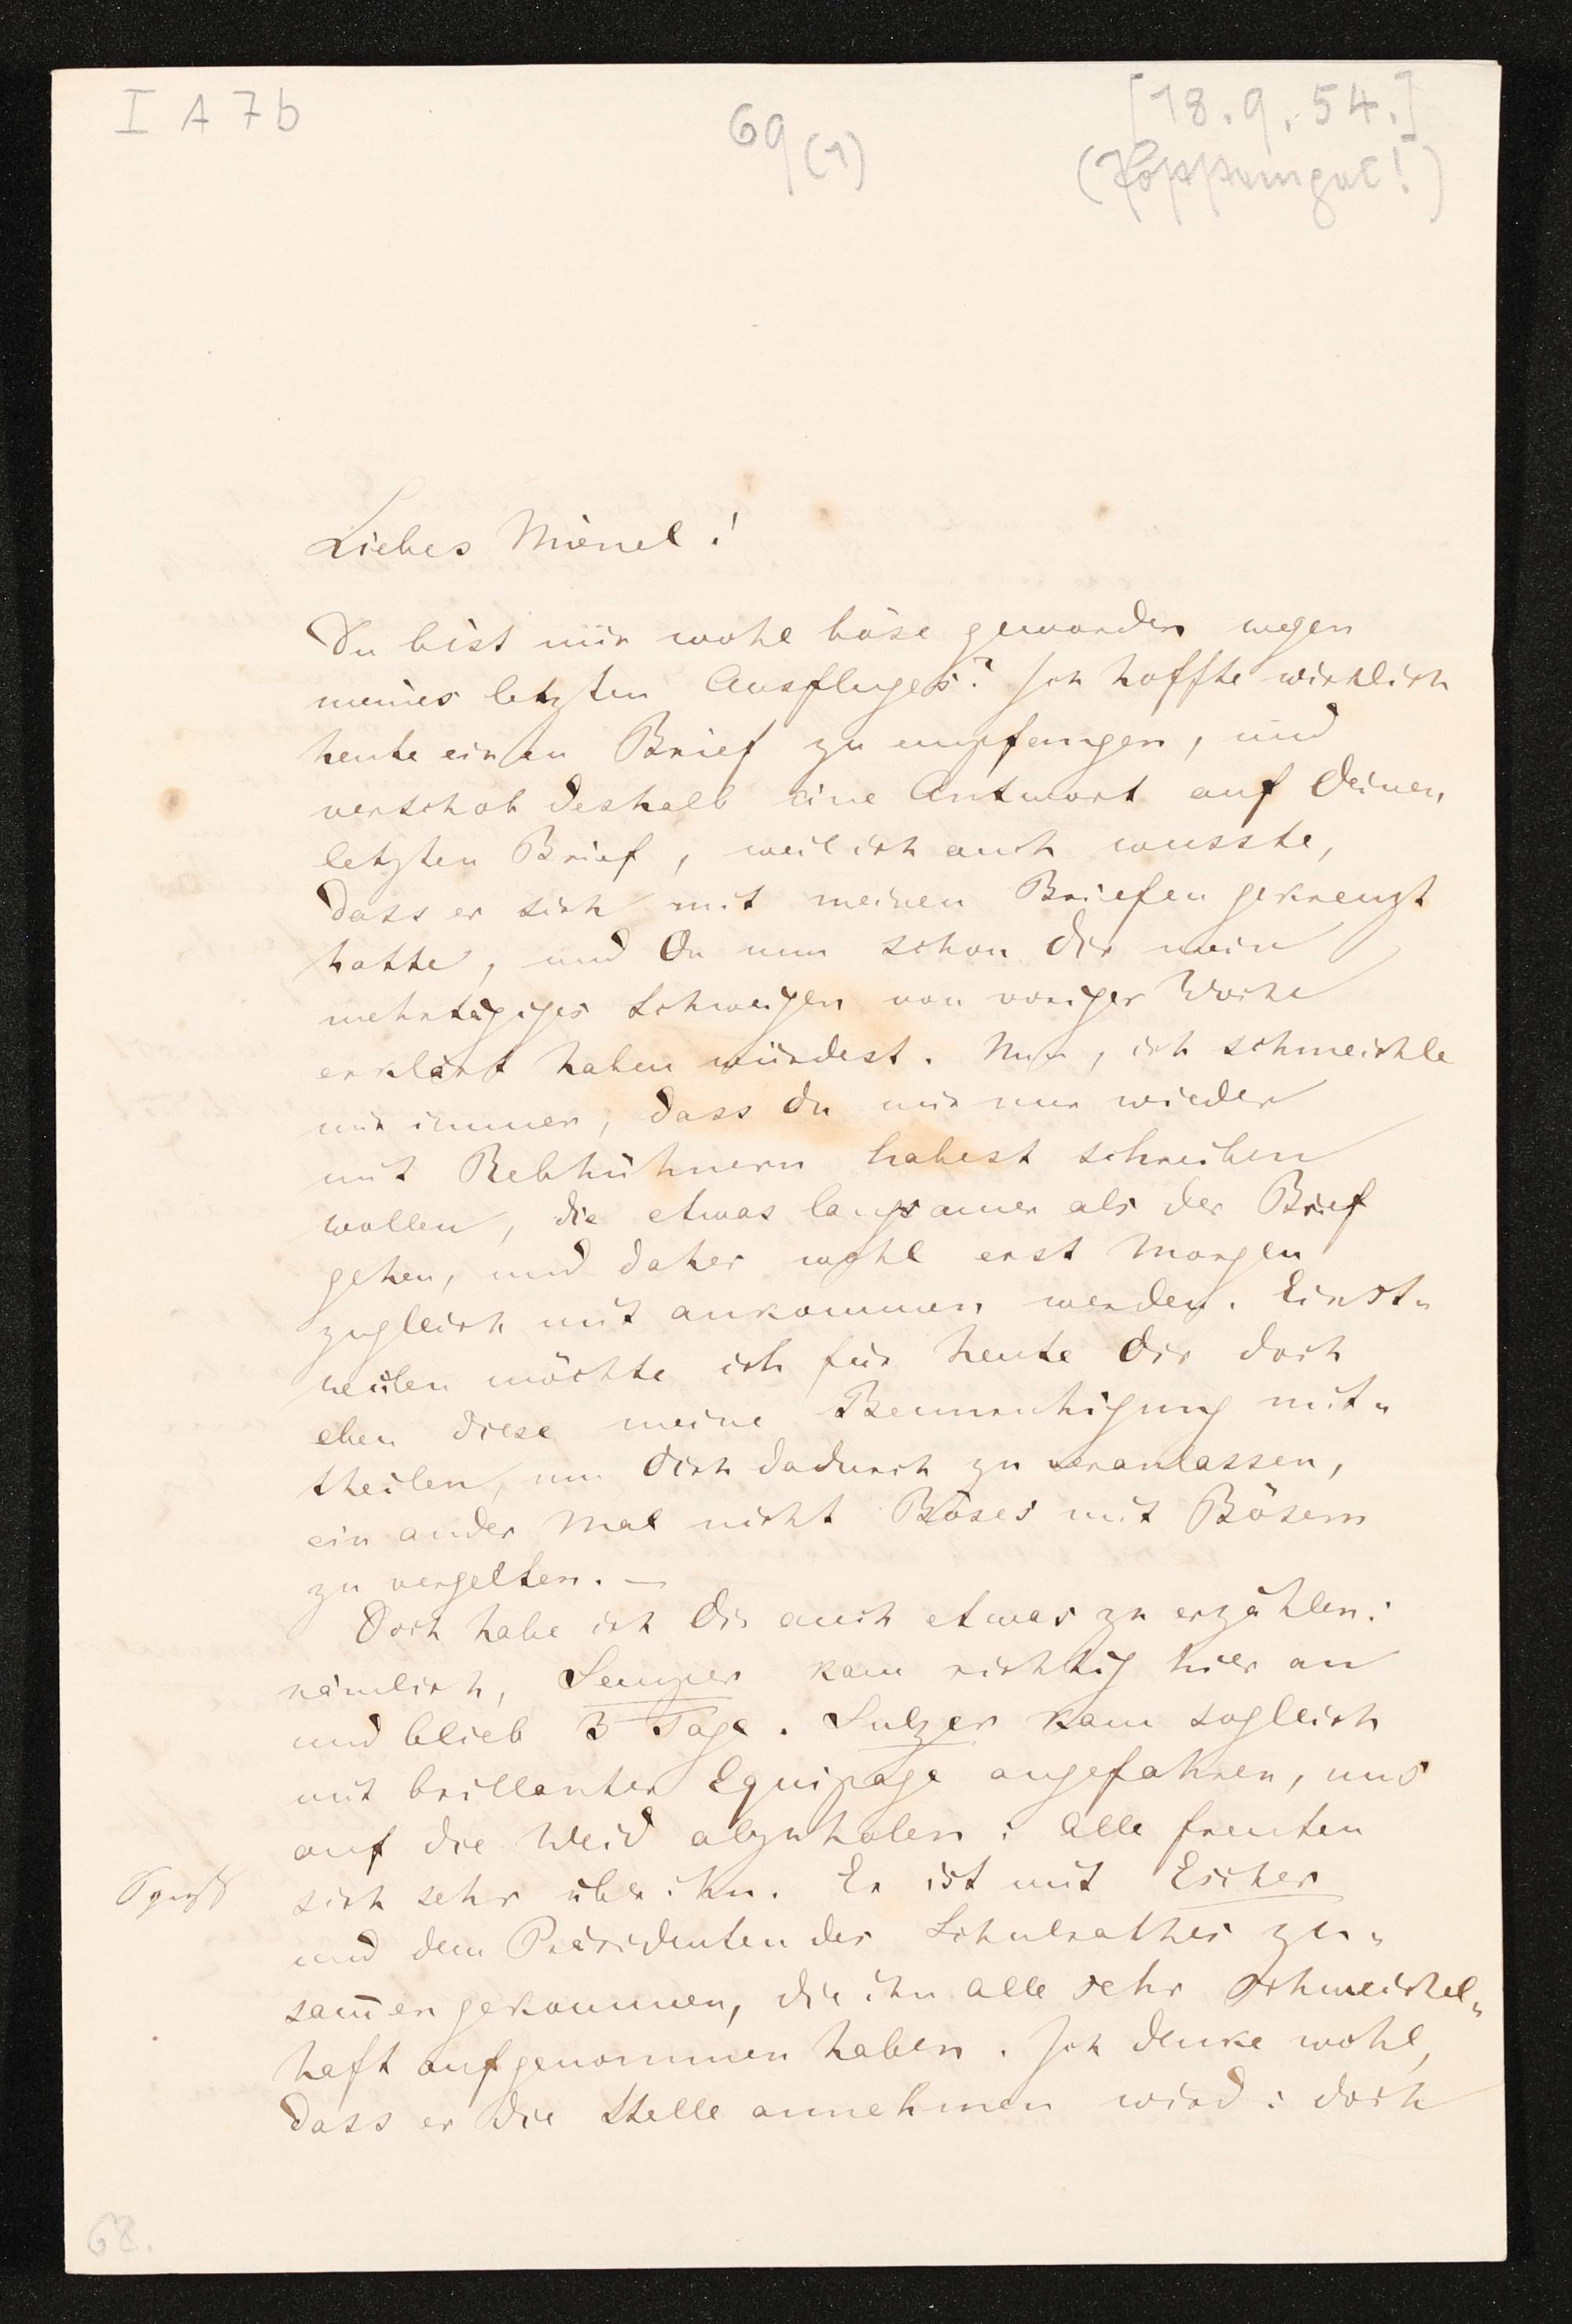 I A 7b
69 (1)
[18.9.54.]
Liebes Mienel!
Du bist mir wohl böse geworden wegen
meines letzten Ausfluges? Ich hoffte wirklich
heute einen Brief zu empfangen, und
verschob deshalb eine Antwort auf Deinen
letzten Brief, weil ich auch wusste,
dass er sich mit meinen Briefen gekreuzt
hatte, und Du nun schon Dir mein
mehrtägiges Schweigen von voriger Woche
erklärt haben würdest. Nun, ich schmeichle
mir immer, dass Du mir nur wieder
mit Rebhühnern habest schreiben
wollen, die etwas langsamer als der Brief
gehen, und daher wohl erst Morgen
zugleich mit ankommen werden. Einst-
weilen möchte ich für heute Dir doch
eben diese meine Beunruhigung mit-
theilen, um Dich dadurch zu veranlassen,
ein ander Mal nicht Böses mit Bösem
zu vergelten. —
Doch habe ich Dir auch etwas zu erzählen:
nämlich, Semper kam richtig hier an
und blieb 3 Tage. Sulzer kam sogleich
mit brillanter Equipage angefahren, uns
auf die Weid abzuholen: alle freuten
sich sehr über ihn. Er ist mit Escher
und dem Präsidenten des Schulrathes zu-
sam̄en gekommen, die ihn alle sehr schmeichel-
haft aufgenommen haben. Ich denke wohl,
dass er die Stelle annehmen wird: doch
68.